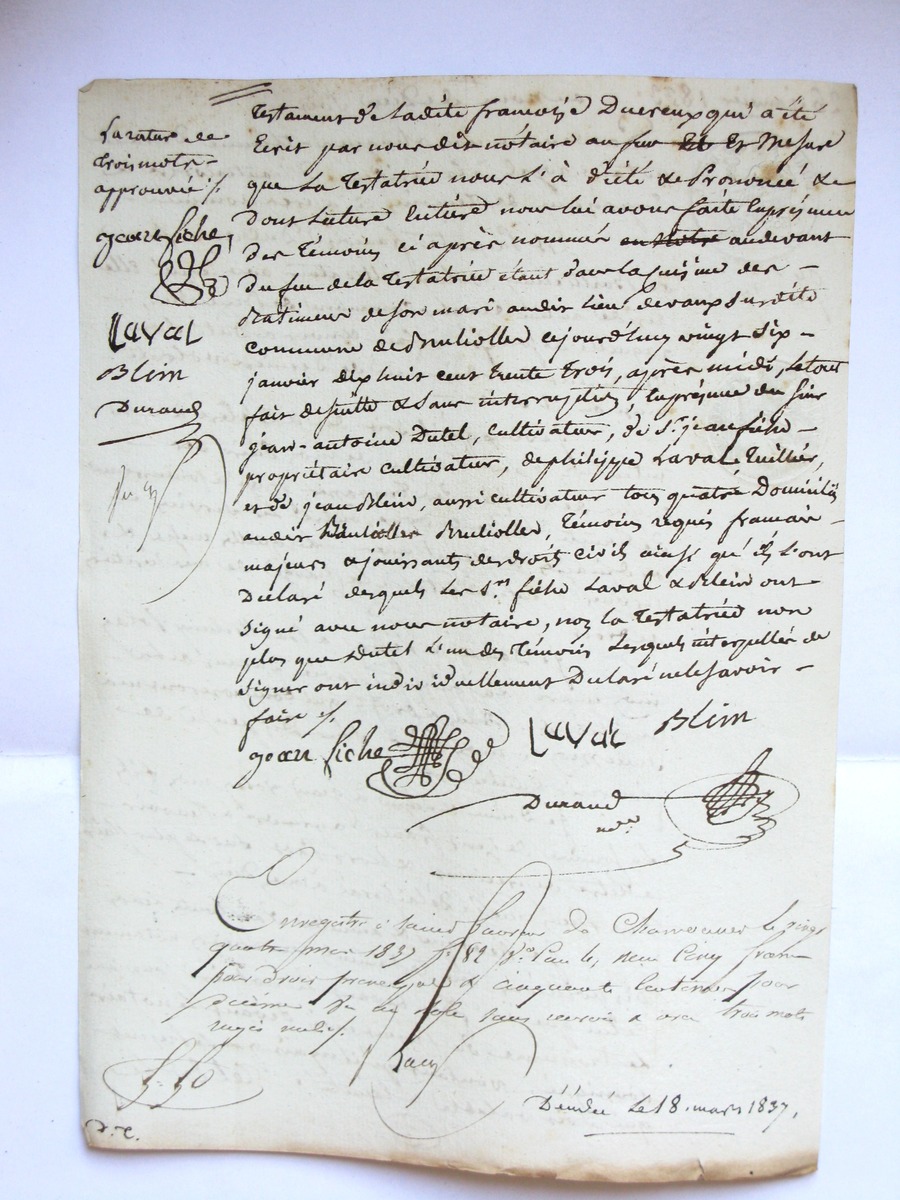 La rature de
trois mots
approuvée ./.
jean fiche
Laval
Blein
Durand
testament de ladite françoise Ducreux qui a été
Ecrit par nous dit notaire au fur Et Et Mesure
que La testatrice nous L'à dicté & Prononcé &
Dont lecture Entière nous lui avons faite En présence
des témoins ci après nommés en Notre au devant
du feu de la testatrice étant dans la cuisine des
Batimens de son mari audit Lieu de vaux susdite
commune de Brulliolles cejourd'huy vingt six
janvier dix huit cent trente trois, après midi, le tout
fait de suitte & sans interruption, En présence du sieur
jean-antoine Dutel, cultivateur, de Sr. jean fiche
propriétaire cultivateur, de philippe Laval tuillier,
et de jean Blein, aussi cultivateur tous quatre Domiciliés
audit Brulliolles Brulliolles, témoins requis français
majeurs & jouissants des droits civils ainsi qu'ils L'ont
Déclaré desquels Les Srs. fiche Laval & Blein ont
signé avec nous notaire, non la testatrice non
plus que Dutel L'un des témoins Lesquels interpellés de
signer ont individuellement Déclaré ne le savoir
faire ./.
jean fiche Laval Blein
Durand
nre.
Enregistré à Saint Laurent de Chamousset le vingt
quatre mai 1837 fo. 82 reçu Cinq francs
pour droit principal & cinquante Centimes pour
décime sans renvoi & avec trois mots
rayés nuls ./.
Décédée Le 18. mars 1837.